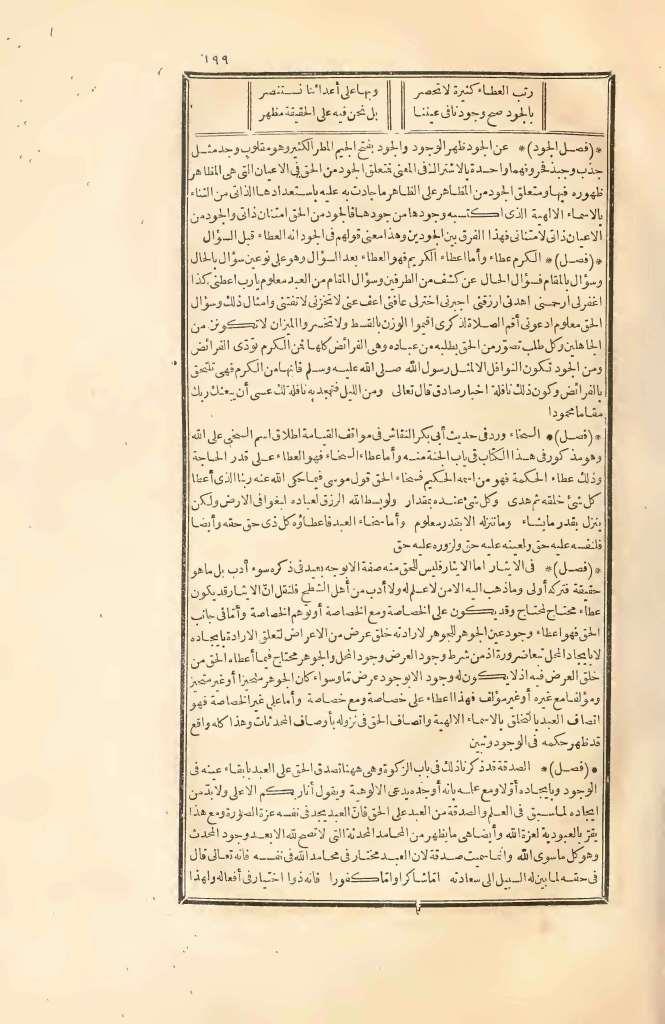 ١٩٩
رتب العطاء كثيرة لا تحصر وبها على أعدائنا نستنصر
بالجود صح وجودنا في عيننا بل نحن فيه على الحقيقة مظهر
*(فصل الجود)* عن الجود ظهر الوجود والجود بفتح الجيم المطر الكثير وهو مقلوب وجد مثل
جذب وجبذ فحروفهما واحدة بالاشتراك في المعنى فمتعلق الجود من الحق في الاعيان التي هي المظاهر
ظهوره فيها ومتعلق الجود من المظاهر على الظاهر ما جادت به عليه باستعدادها الذاتي من الثناء
بالاسماء الالهية الذي اكتسبه وجودها من جودها فالجود من الحق امتنان ذاتي والجود من
الاعيان ذاتي لا امتناني فهذا الفرق بين الجودين وهذا معنى قولهم في الجود انه العطاء قبل السؤال
*(فصل)* الكرم عطاء وأما اعطاء الكريم فهو العطاء بعد السؤال وهو على نوعين سؤال بالحال
وسؤال بالمقام فسؤال الحال عن كشف من الطرفين وسؤال المقام من العبد معلوم يارب اعطني كذا
اغفر لي ارحمني اهدني ارزقني اجبرني اختر لي عافني اعف عني لا تخزني لا تفتني وامثال ذلك وسؤال
الحق معلوم ادعوني أقم الصلاة لذكرى اقيموا الوزن بالقسط ولا تخسروا الميزان لا تكونن من
الجاهلين وكل طلب تصوّر من الحق يطلبه من عباده وهى الفرائض كلها فمن الكرم تؤدّى الفرائض
ومن الجود تكون النوافل الا لمثل رسول الله صلى الله عليه وسلم فانها من الكرم فهى تلتحق
بالفرائض وكون ذلك نافلة اخبار صادق قال تعالى ومن الليل فتهجد به نافلة لك عسى أن يبعثك ربك
مقاما محمودا
*(فصل)* السخاء ورد في حديث أبى بكر النقاش في مواقف القيامة اطلاق اسم السخى على الله
وهو مذكور في هذا الكتاب في باب الجنة منه وأما عطاء السخاء فهو العطاء على قدر الحاجة
وذلك عطاء الحكمة فهو من اسمه الحكيم فسخاء الحق قول موسى فيما حكى الله عنه ربنا الذى أعطا
كل شئ خلقه ثم هدى وكل شئ عنده بمقدار ولو بسط الله الرزق لعباده لبغوا في الارض ولكن
ينزل بقدر ما يشاء وما ننزله الا بقدر معلوم وأما سخاء العبد فاعطاؤه كل ذى حق حقه وأيضا
فلنفسه عليه حق ولعينه عليه حق ولزوره عليه حق
*(فصل)* في الايثار اما الايثار فليس للحق منه صفة الا بوجه بعيد في ذكره سوء أدب بل ما هو
حقيقة فتركه أولى وما ذهب اليه الا من لا علم له ولا أدب من أهل الشطح فلنقل انّ الايثار قد يكون
عطاء محتاج لمحتاج وقد يكون على الخصاصة ومع الخصاصة أو توهم الخصاصة وأما في جانب
الحق فهو اعطاء وجود عين الجوهر للجوهر لارادته خلق عرض من الاعراض لتعلق الارادة بايجاده
لا بايجاد المحل تبعا ضرورة اذ من شرط وجود العرض وجود المحل والجوهر محتاج فيما أعطاه الحق من
خلق العرض فيه اذ لا يكون له وجود الا بوجود عرض ما وسواء كان الجوهر متحيزا أو غير متحيز
ومؤلفا مع غيره أو غير مؤلف فهذا اعطاء على خصاصة ومع خصاصة وأما على غير الخصاصة فهو
اتصاف العبد بالتخلق بالاسماء الالهية واتصاف الحق في نزوله بأوصاف المحدثات وهذا كله واقع
قد ظهر حكمه في الوجود وتبين
*(فصل)* الصدقة قد ذكرنا ذلك في باب الزكوة وهى ههنا تصدق الحق على العبد بابقاء عينه في
الوجود وبايجاده أوّلا ومع علمه بانه أوجده يدعى الالوهية ويقول أنا ربكم الاعلى ولا بدّ من
ايجاده لما سبق في العلم والصدقة من العبد على الحق فانّ العبد يجد في نفسه عزة الصورة ومع هذا
يقرّ بالعبودية لعزة الله وأيضا هى ما يظهر من المحامد المحدثة التي لا تصح لله الا بعد وجود المحدث
وهو كل ما سوى الله وانما سميت صدقة لان العبد مختار في محامد الله في نفسه فانه تعالى قال
في حقه لما بين له السبيل الى سعادته امّا شاكرا وامّا كفورا فانه ذو اختيار في أفعاله ولهذا